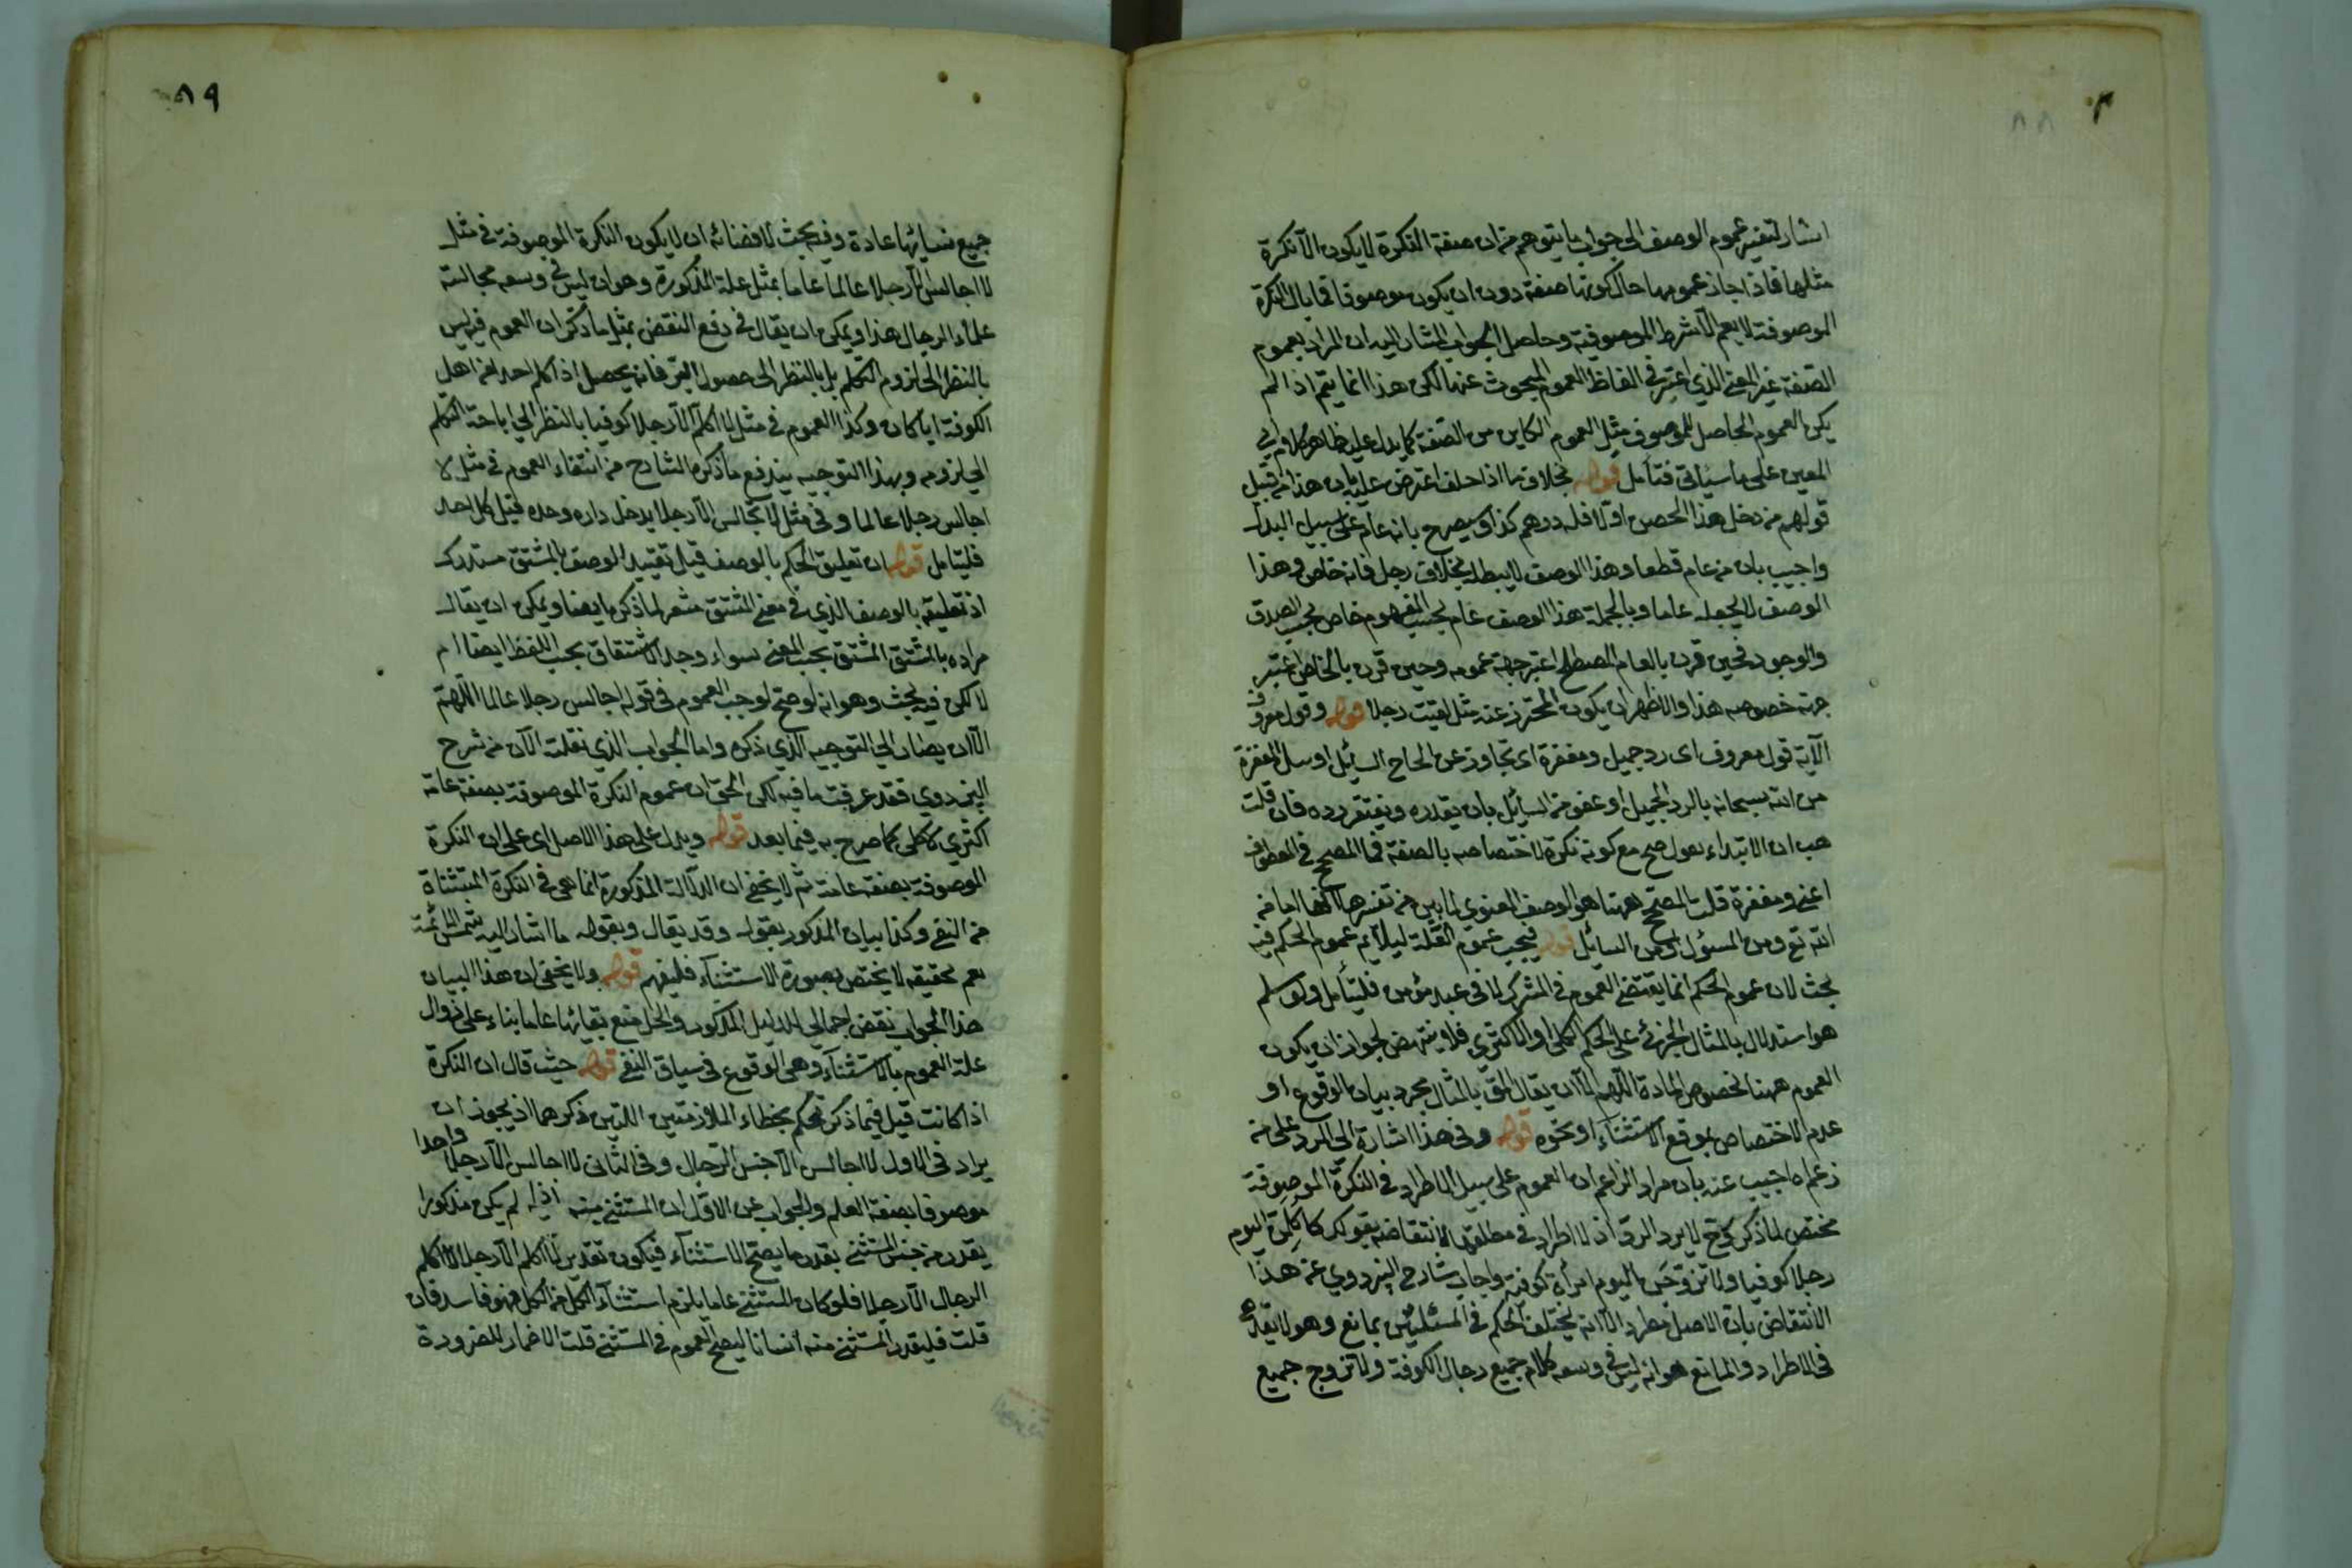 ٨٨
اشار لتفسير عموم الوصف الى جواب ما يتوهم من ان صفة النكرة لا يكون الا نكرة
مثلها فاذا جاز عمومها حال كونها صفة دون ان يكون موصوفا فما بال النكرة
الموصوفة لا يعم الا بشرط الموصوفية وحاصل الجواب المشار اليه ان المراد بعموم
الصفة غير المعنى الذي اعتبر في الفاظ العموم المبحوث عنها لكن هذا انما يتم اذا لم
يكن العموم الحاصل للموصوف مثل العموم الكاين من الصفة كما يدل عليه ظاهر كلام ابي
المعين على ما سياتي فتأمل قوله بخلاف ما اذا حلف اعترض عليه بان هذا من قبيل
قولهم من دخل هذا الحصن اولا فله درهم كذا وسيصرح بانه عام على سبيل البدل
واجيب بان من عام قطعا وهذا الوصف لا يبطله بخلاف رجل فانه خاص وهذا
الوصف لا يجعله عاما وبالجملة هذا الوصف عام بحسب المفهوم خاص بحسب الصدق
والوجود فحين قرن بالعام المصطلح اعتبر جهة عمومه وحين قرن بالخاص اعتبر
جهة خصوصه هذا والاظهر ان يكون المحترز عنه مثل لقيت رجلا قوله وقول معروف
الآية قول معروف اى رد جميل ومغفرة اى تجاوز عن الحاح السائل او سل المغفرة
من الله سبحانه بالرد الجميل او عفو من السائل بان يقدره ويغتفر رده فان قلت
هب ان الابتداء بقول صح مع كونه نكرة لاختصاصه بالصفة فما المصحح في المعطوف
اعني ومغفرة قلت المصحح ههنا هو الوصف المعنوى لما بين من تفسيرها انها اما من
الله تع ومن المسؤل او من السائل قوله فيجب عموم العلة ليلايم عموم الحكم فيه
بحث لان عموم الحكم انما يقتضى العموم في المشرك لا في عبد مؤمن فليتأمل ولو سلم
هو استدلال بالمثال الجزئى على الحكم الكلى او الاكثرى فلا ينتهض لجواز ان يكون
العموم ههنا لخصوص المادة اللهم الا ان يقال المق بالمثال مجرد بيان الوقوع او
عدم الاختصاص بموقع الاستثناء او نحوه قوله وفي هذا اشارة الى الرد على من
زعم اه اجيب عنه بان مراد الزاعم ان العموم على سبيل الاطراد في النكرة الموصوفة
مختص لما ذكر كى لا يرد الرد اذ لا اطراد في مطلقها لانتقاضه بقولك لاكلمن اليوم
رجلا كوفيا ولاتزوجن اليوم امرأة كوفية واجاب شارح البزدوي عن هذا
الانتقاض بان الاصل مطرد الا انه يختلف الحكم في المسئلتين بمانع وهو لا يقدح
في الاطراد والمانع هو انه ليس في وسعه كلام جميع رجال الكوفة ولا تزوج جميع
٨٩
جميع نسائها عادة وفيه بحث لافضائه ان لا يكون النكرة الموصوفة في مثل
لا اجالس الا رجلا عالما عاما بمثل علة المذكورة وهو ان ليس في وسعه مجالسة
علماء الرجال هذا ويمكن ان يقال في دفع النقض بمثل ما ذكر ان العموم فيه ليس
بالنظر الى لزوم التكلم بل بالنظر الى حصول البر فانه يحصل اذا كلم احدا من اهل
الكوفة ايا كان وكذا العموم في مثل لا اكلم الا رجلا كوفيا بالنظر الى اباحة التكلم
الى لزومه وبهذا التوجيه يندفع ما ذكره الشارح من انتفاء العموم في مثل لا
اجالس رجلا عالما وفي مثل لا تجالس الا رجلا يدخل داره وحده قبل كل احد
فليتأمل قوله ان تعليق الحكم بالوصف قيل تقييد الوصف بالمشتق مستدرك
اذ تعليقه بالوصف الذي في معنى المشتق مشعر لما ذكره ايضا ويمكن ان يقال
مراده بالمشتق المشتق بحسب المعنى سواء وجد الاشتقاق بحسب اللفظ ايضا ام
لا لكن فيه بحث وهو انه لو صح لوجب العموم في قوله اجالس رجلا عالما اللهم
الا ان يضاف الى التوجيه الذي ذكره واما الجواب الذي نقلته الآن من شرح
البزدوي فقد عرفت ما فيه لكن الحق ان عموم النكرة الموصوفة بصفة عامة
اكثري لا كلى كما صرح به فيما بعد قوله ويدل على هذا الاصل اى على ان النكرة
الموصوفة بصفة عامة ثم لا يخفى ان الدلالة المذكورة انما هى في النكرة المستثناة
من النفى وكذا بيان المذكور بقوله وقد يقال وبقوله ما اشار اليه شمس الائمة
نعم تحقيقه لا يختص بصورة الاستثناء فليفهم قوله ولا يخفى ان هذا البيان
هذا الجواب نقض اجمالي للدليل المذكور والحل منع بقائها عاما بناء على زوال
علة العموم بالاستثناء وهى الوقوع في سياق النفى قوله حيث قال ان النكرة
اذا كانت قيل فيما ذكر تحكم بخطاء الملازمتين اللتين ذكرهما اذ يجوز ان
يراد في الاول لا اجالس الا جنس الرجال وفي الثانى لا اجالس الا رجلا واحدا
موصوفا بصفة العلم والجواب عن الاول ان المستثنى منه اذا لم يكن مذكورا
يقدر من جنس المستثنى بقدر ما يصح الاستثناء فيكون تقدير لا اكلم الا رجلا لا اكلم
الرجال الا رجلا فلو كان المستثنى عاما يلزم استثناء الكل من الكل فهو فاسد فان
قلت فليقدر المستثنى منه انسانا ليصح العموم في المستثنى قلت الاضمار للضرورة